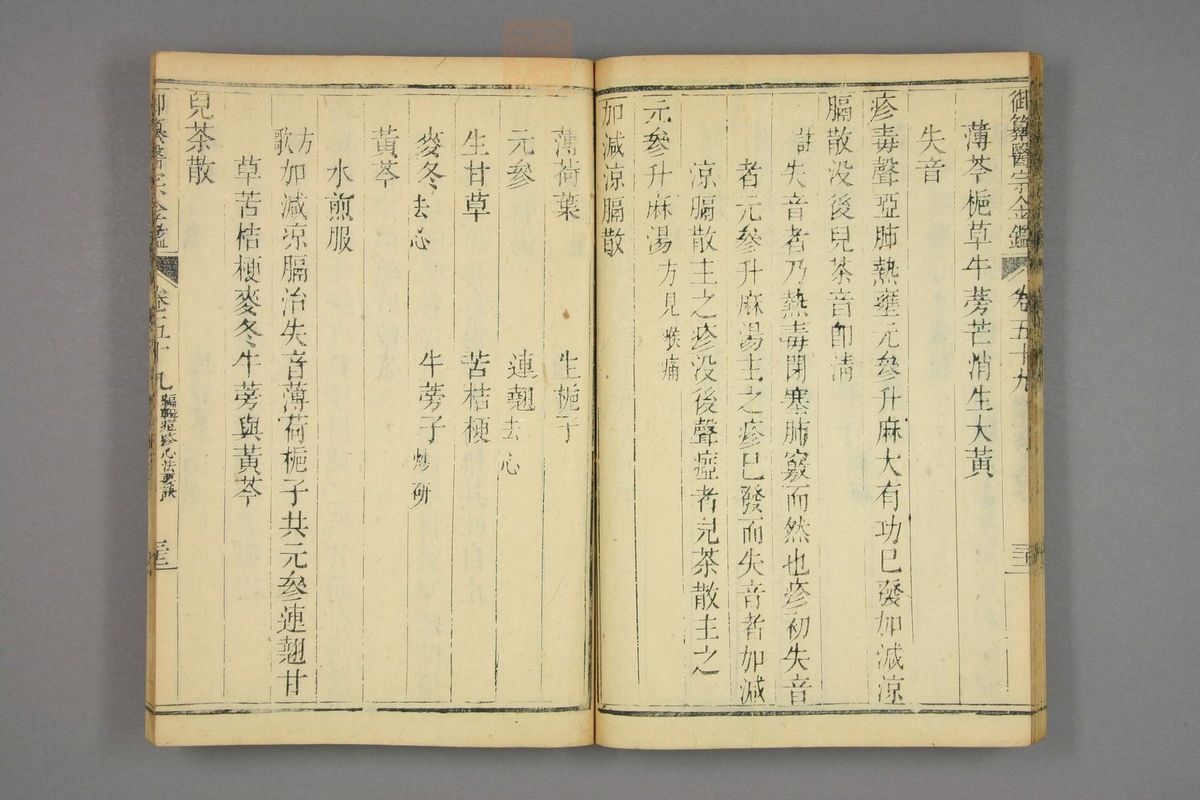 御纂醫宗金鑑 卷五十九
薄芩梔草牛蒡芒消生大黃
失音
疹毒聲啞肺熱壅元參升麻大有功已發加減涼
膈散没後兒茶音卽清
註失音者乃熱毒閉塞肺竅而然也疹初失音
者元參升麻湯主之疹已發而失音者加減
涼膈散主之疹没後聲瘂者兒茶散主之
元參升麻湯 方見喉痛
加減涼膈散
薄荷葉 生梔子
元參 連翹去心
生甘草 苦桔梗
麥冬去心 牛蒡子炒研
黃芩
水煎服
方歌加減涼膈治失音薄荷梔子共元參連翹甘
草苦桔梗麥冬牛蒡與黃芩
兒茶散
御纂醫宗金鑑 卷五十九 編輯痘疹心法要訣